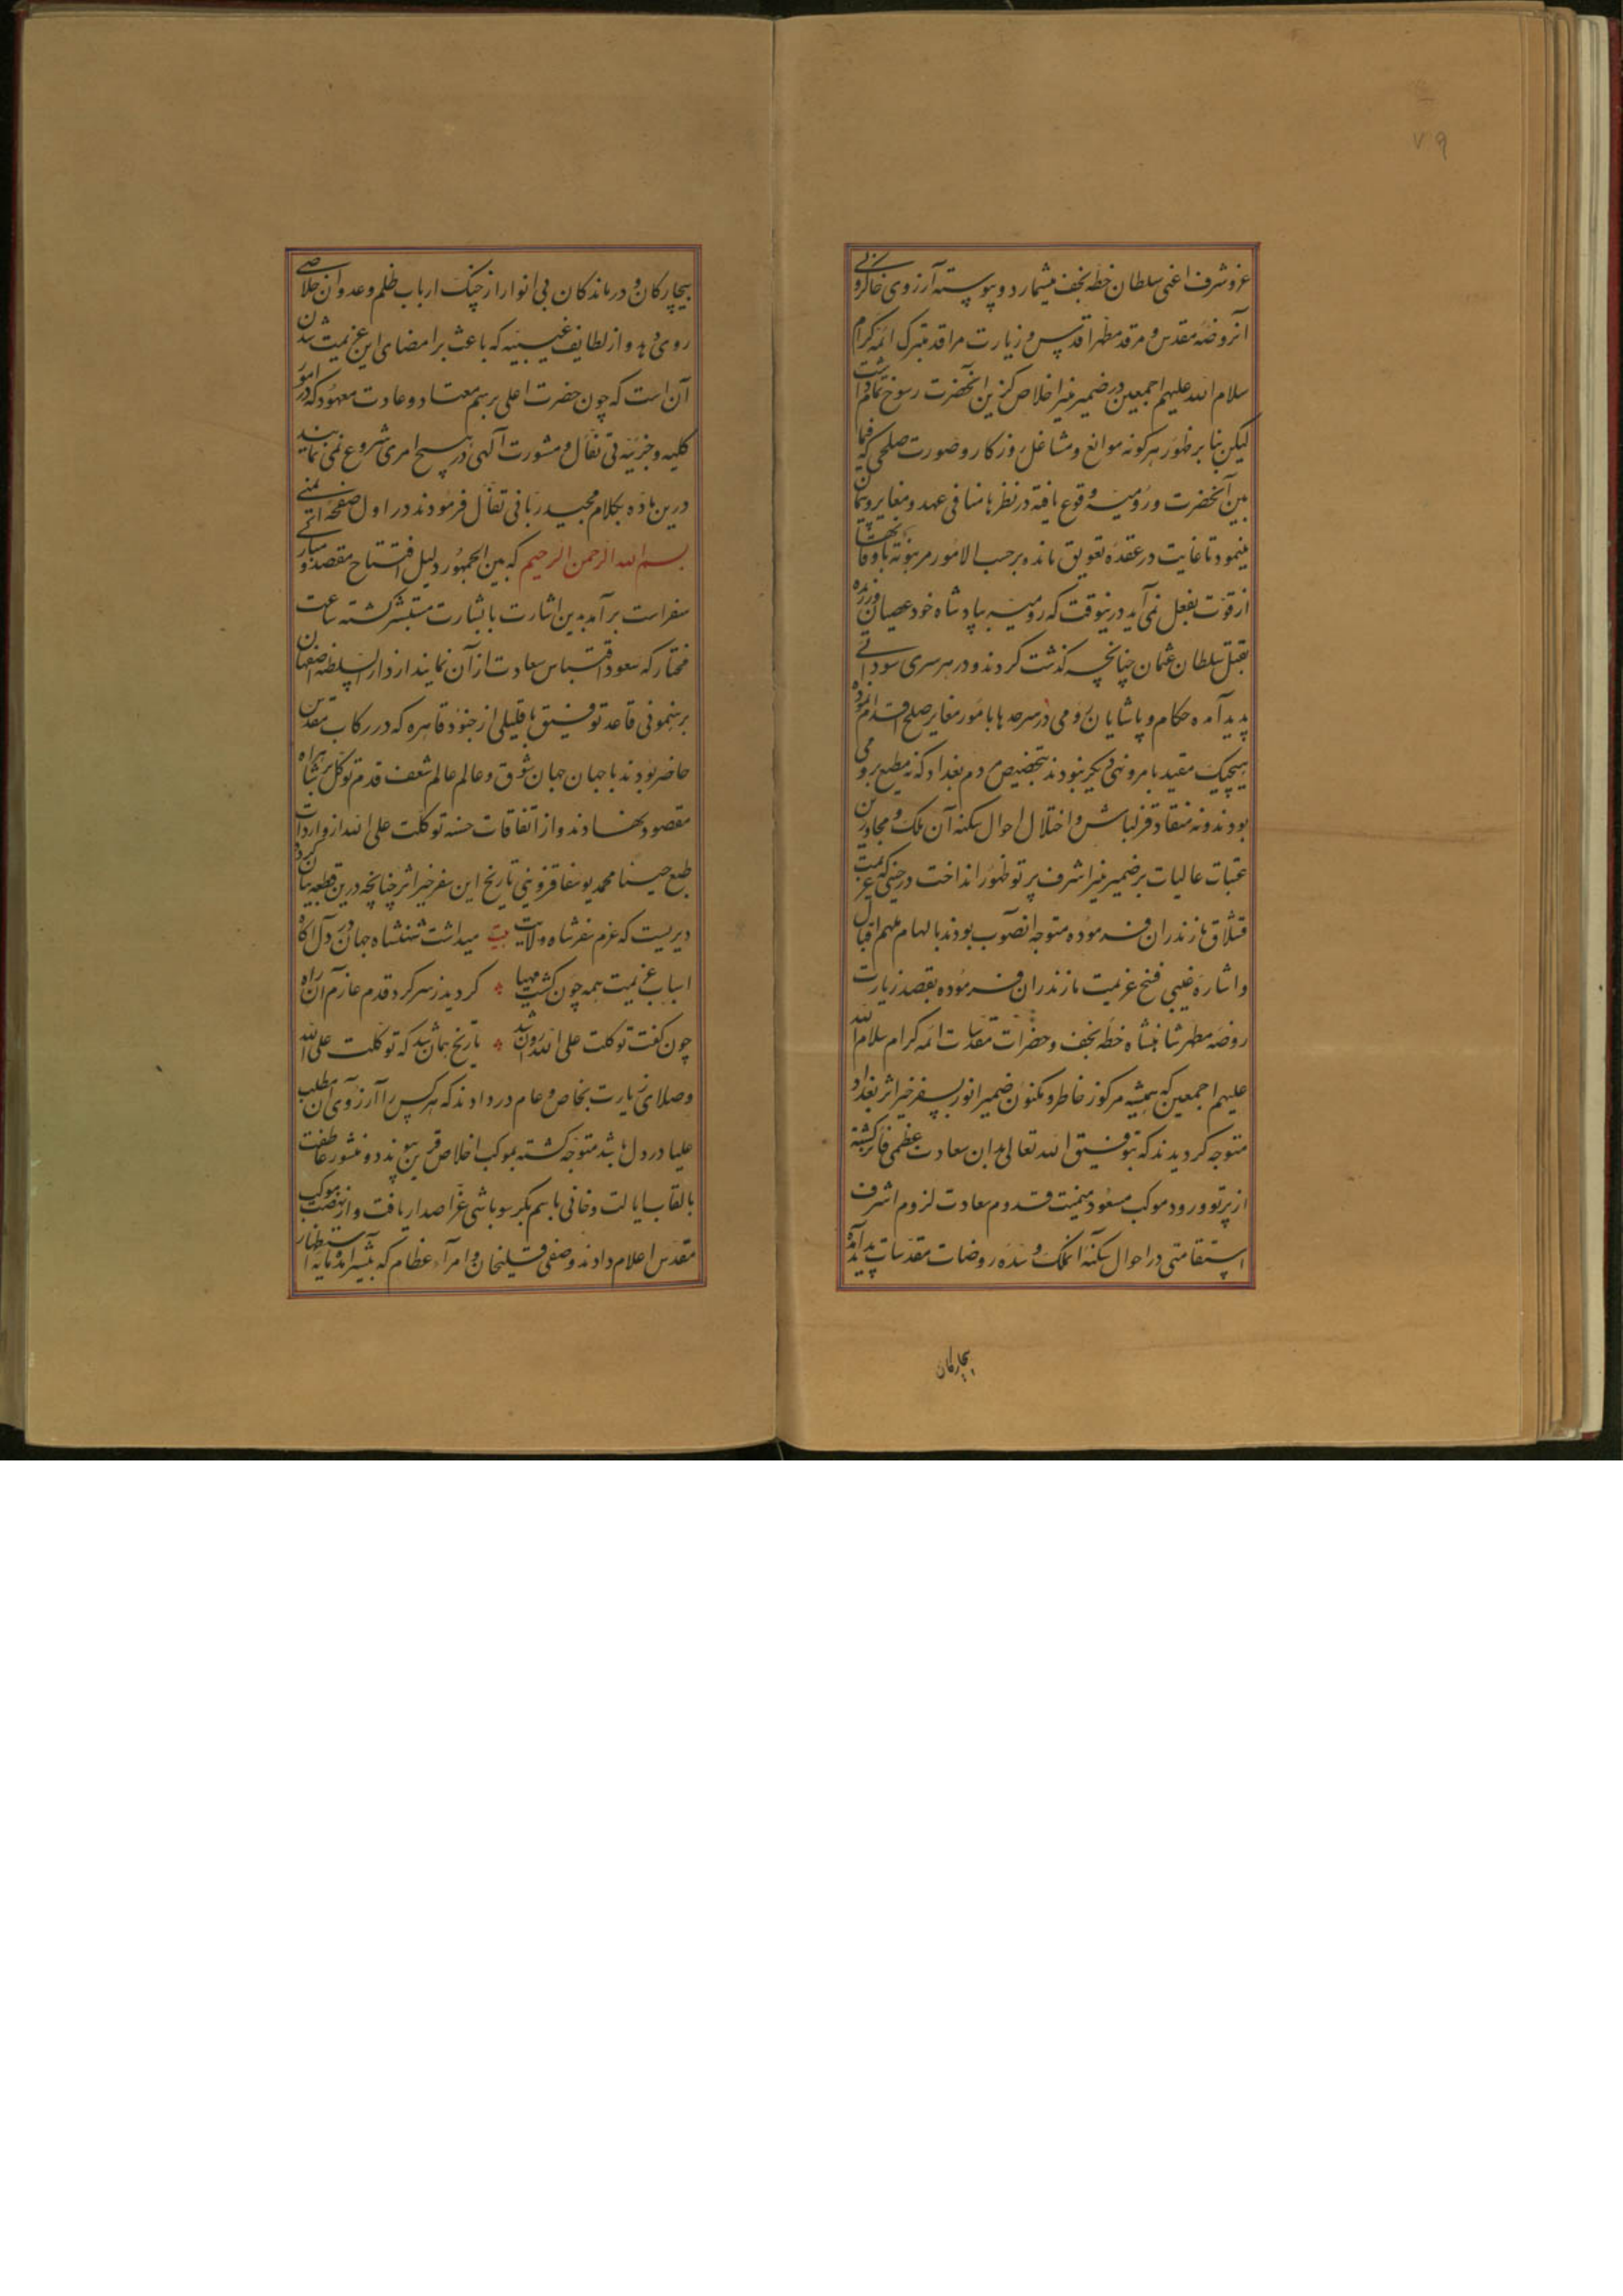 ۷۹
عز و شرف اعنی سلطان خطه نجف میشمارد و پیوسته آرزوی خاکروبی
آنروضه مقدس و مرقد مطهر اقدس و زیارت مراقد متبرک ائمه کرام
سلام الله علیهم اجمعین در ضمیر منیر اخلاص گزین آنحضرت رسوخ تمام داشت
لیکن بنا بر ظهور هر کونه موانع و مشاغل روزکار و صورت صلحی که فیما
بین آنحضرت و رومیه وقوع یافته در نظرها منافی عهد و مغایر پیمان
مینمود تا غایت در عقده تعویق مانده بر حسب الامور مرهونة باوقاتها
از قوت بفعل نمی آید درینوقت که رومیه بپادشاه خود عصیان ورزیده
بقتل سلطان عثمان چنانچه کذشت کردند و در هر سری سودائی
پدید آمده حکام و پاشایان رومی در سرحدها بامور مغایر صلح اقدام نموده
هیچیک مقید بامر و نهی دیکری نبودند بتخصیص مردم بغداد که نه مطیع رومی
بودند و نه منقاد قزلباش و اختلال احوال سکنه آن ملک و مجاورین
عتبات عالیات بر ضمیر منیر اشرف پرتو ظهور انداخت در حینی که عزیمت
قشلاق مازندران فرموده متوجه انصوب بودند بالهام ملهم اقبال
و اشاره غیبی فسخ عزیمت مازندران فرموده بقصد زیارت
روضه مطهر شاهنشاه خطه نجف و حضرات مقدسات ائمه کرام سلام الله
علیهم اجمعین که همیشه مرکوز خاطر و مکنون ضمیر انور بسفر خیر اثر بغداد
متوجه کردیدند که بتوفیق الله تعالی بدان سعادت عظمی فائز کشته
از پرتو ورود موکب مسعود میمنت قدوم سعادت لزوم اشرف
استقامتی در احوال سکنه انملک و سده روضات مقدسات پدید آمده
بیچارکان
بیچارکان و درماندکان بی انوار از چنک ارباب ظلم و عدوان خلاصی
روی دهد و از لطایف غیبیه که باعث بر امضای این عزیمت شد آن
آن است که چون حضرت اعلی برسم معتاد و عادت معهود که در امور
کلیه و جزئیه بی تفأل و مشورت آلهی در هیچ امری شروع نمی نمایند
درین ماده بکلام مجید ربانی تفأل فرمودند در اول صفحه اتی
بسم الله الرحمن الرحیم که بین الجمهور دلیل افتتاح مقصد و
سفر است برآمد بدین اشارت با بشارت مستبشر کشته ساعت
مختار که سعود اقتباس سعادت از آن نمایند از دار السلطنه اصفهان
برهنمونی قاعد توفیق با قلیلی از جنود قاهره که در رکاب مقدس
حاضر بودند با جهان جهان شوق و عالم عالم شعف قدم توکل بر شاهراه
مقصود نهادند و از اتفاقات حسنه توکلت علی الله از واردات
طبع حسینا محمد یوسفا قزوینی تاریخ این سفر خیر اثر چنانچه درین قطعه بیان کرد
دیریست که عزم سفر شاه ولایت بیت میداشت شهنشاه جهان در دل آکاه
اسباب عزیمت همه چون کشت مهیا کردید ز سر کرد قدم عازم آن راه
چون کفت توکلت علی الله روان شد تاریخ همان شد که توکلت علی الله
و صلای زیارت بخاص و عام در دادند که هر کس را آرزوی آن مطلب
علیا در دل باشد متوجه کشته بموکب اخلاص قرین پیوندد و منشور عاطفت
بالقاب ایالت و خانی باسم بکر سوباشی غرا صدار یافت و از نهضت موکب
مقدس اعلام دادند و صفی قلیخان و امرآء عظام که بیشتر آمده بآنه استظهار